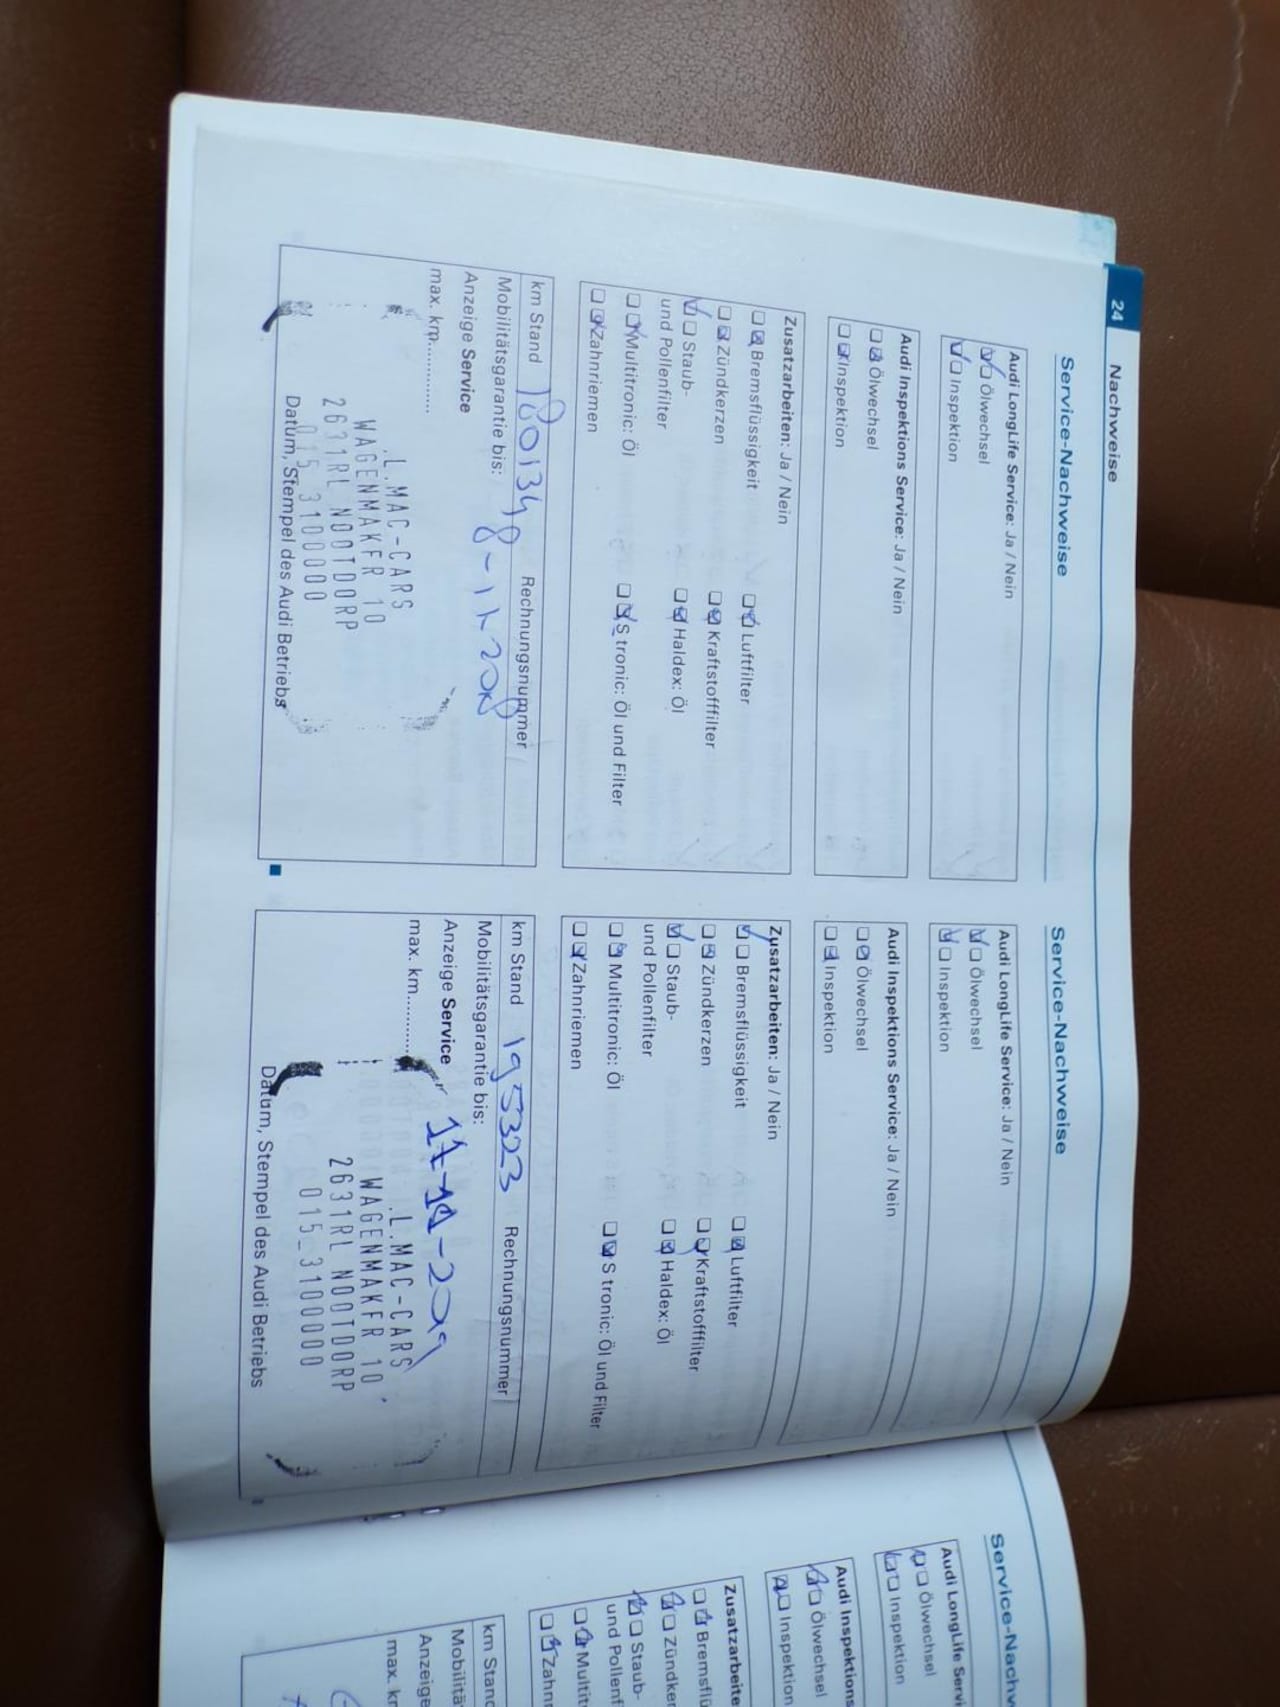 24 Nachweise
Service-Nachweise
Audi LongLife Service: Ja / Nein
Ölwechsel
Inspektion
Audi Inspektions Service: Ja / Nein
Ölwechsel
Inspektion
Zusatzarbeiten: Ja / Nein
Bremsflüssigkeit
Luftfilter
Zündkerzen
Kraftstofffilter
Staub-
und Pollenfilter
Haldex: Öl
Multitronic: Öl
S tronic: Öl und Filter
Zahnriemen
km Stand 180134
Rechnungsnummer
Mobilitätsgarantie bis:
Anzeige Service
max. km............
L.MAC-CARS
WAGENMAKFR 10
2631RL NOOTDORP
015 3100000
Datum, Stempel des Audi Betriebs
Service-Nachweise
Audi LongLife Service: Ja / Nein
Ölwechsel
Inspektion
Audi Inspektions Service: Ja / Nein
Ölwechsel
Inspektion
Zusatzarbeiten: Ja / Nein
Bremsflüssigkeit
Luftfilter
Zündkerzen
Kraftstofffilter
Staub-
und Pollenfilter
Haldex: Öl
Multitronic: Öl
S tronic: Öl und Filter
Zahnriemen
km Stand 195323
Rechnungsnummer
Mobilitätsgarantie bis:
Anzeige Service
max. km............
L.MAC-CARS
WAGENMAKFR 10
2631RL NOOTDORP
015_3100000
Datum, Stempel des Audi Betriebs
Service-Nachw
Audi LongLife Servi
Ölwechsel
Inspektion
Audi Inspektions
Ölwechsel
Inspektion
Zusatzarbeite
Bremsflü
Zündker
Staub-
und Pollenf
Multit
Zahn
km Stand
Mobilitä
Anzeige
max. kr